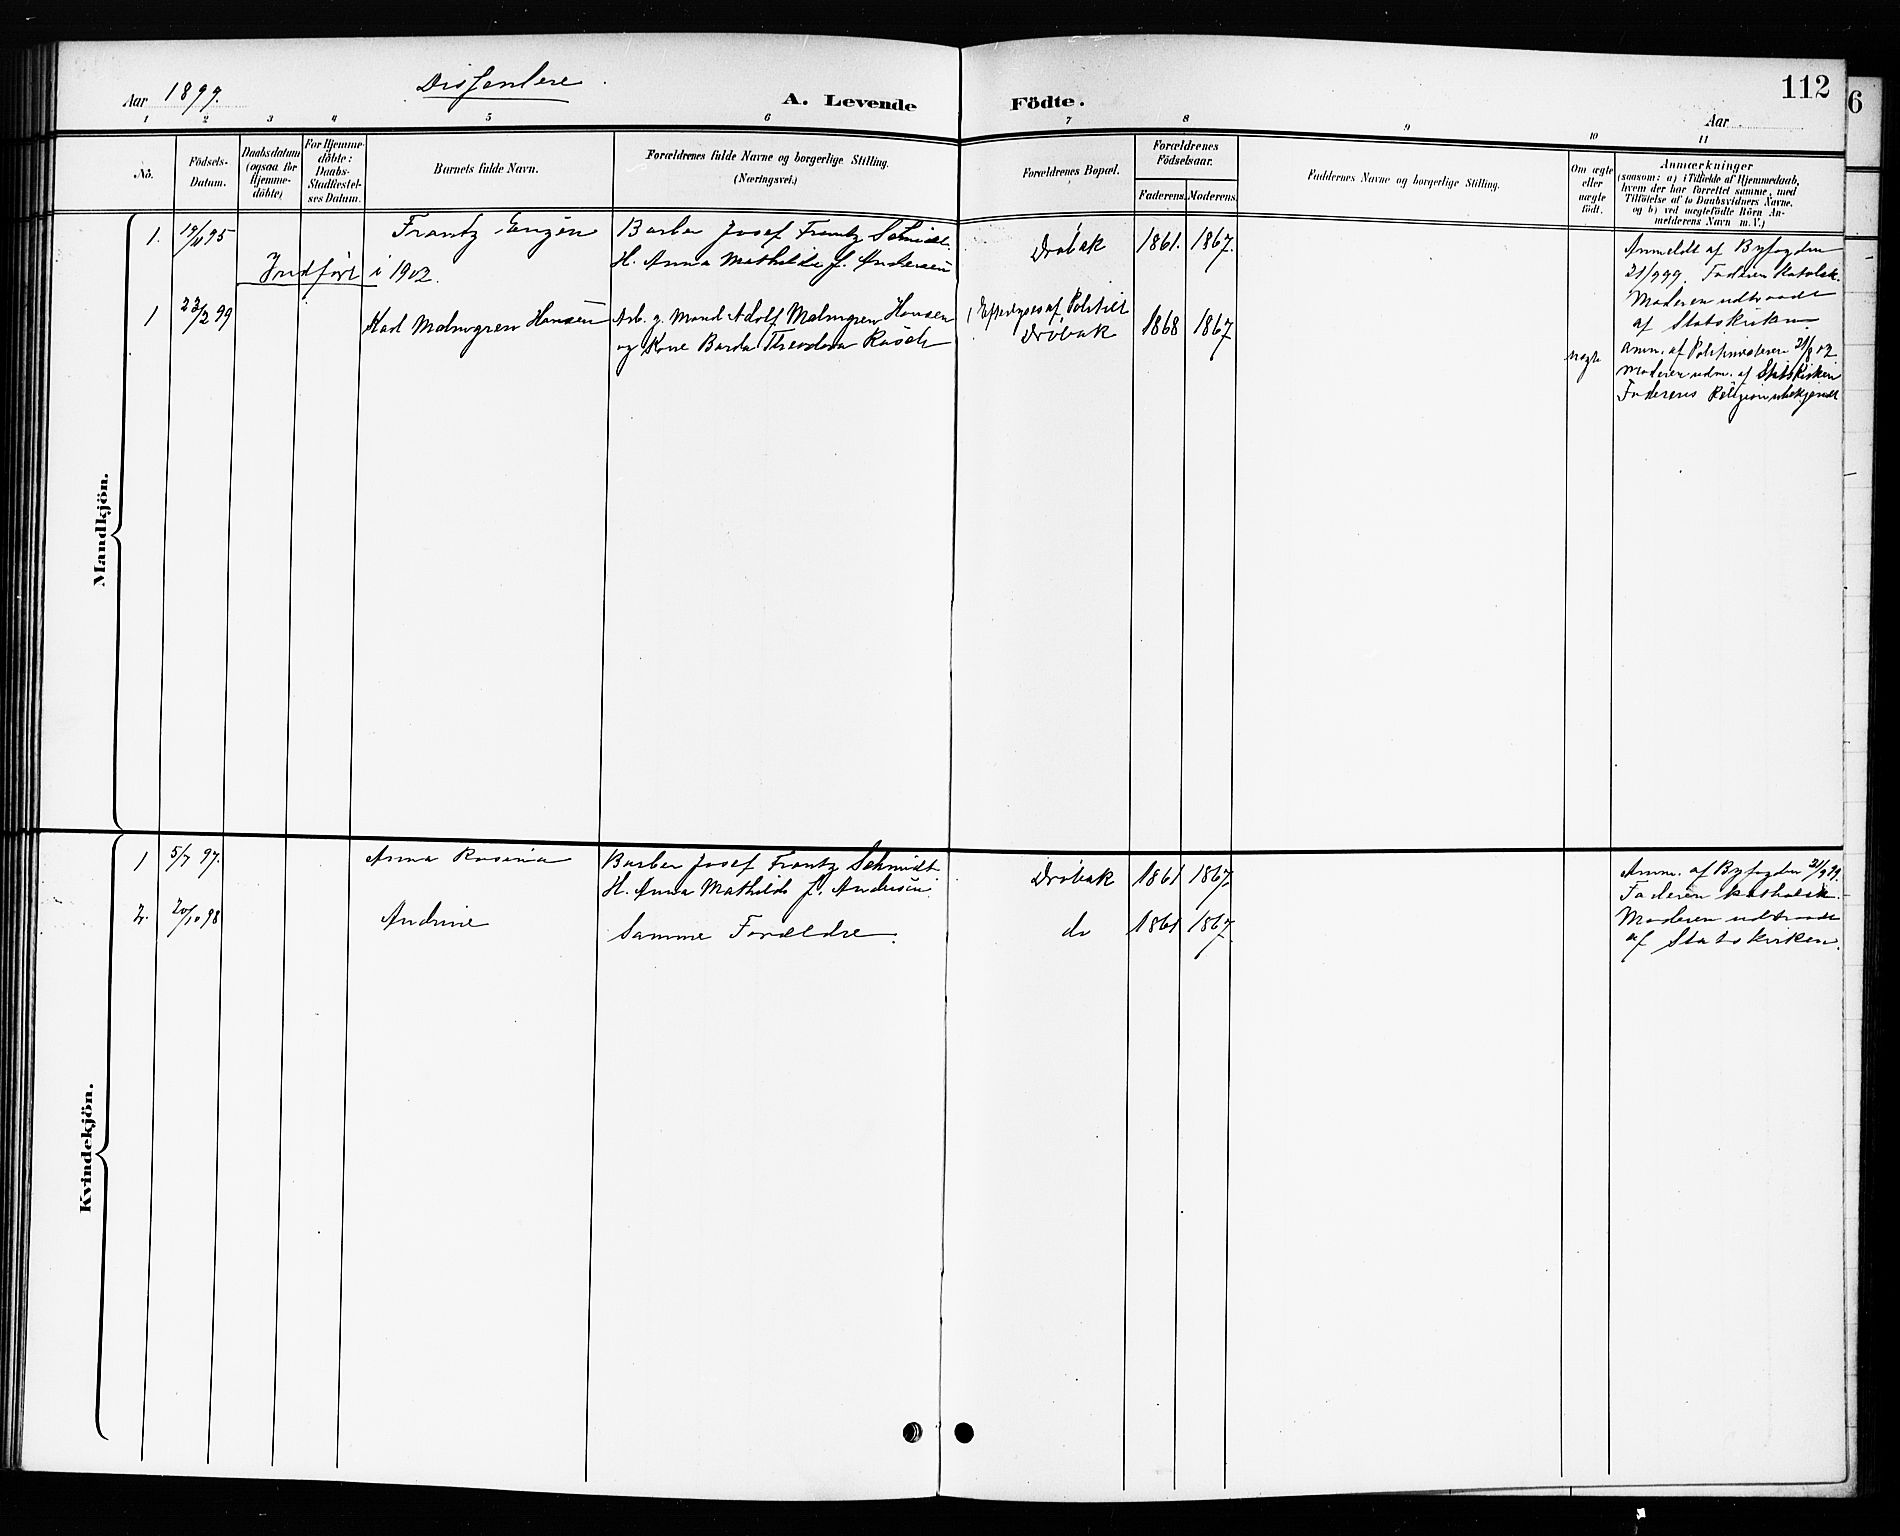 Aar 1899.
Dissentere.
A. Levende
Födte.
112
6
Aar
1 2 3 4 5 6 7 8 9 10 11
No.
Födsels-
Datum.
Daabsdatum
(ogsaa for
Hjemme-
döbte)
For Hjemme-
döbte:
Daabs-
Stadfæstel-
ses Datum.
Barnets fulde Navn.
Forældrenes fulde Navne og borgerlige Stilling.
(Næringsvei.)
Forældrenes Bopæl.
Forældrenes
Födselsaar.
Faderens. Moderens.
Faddernes Navne og borgerlige Stilling.
Om ægte
eller
uægte
födt.
Anmærkninger
(saasom: a) i Tilfælde af Hjemmedaab,
hvem der har forrettet samme, med
Tilföielse af to Daabsvidners Navne,
og b) ved uægtefödte Börn An-
melderens Navn m. V.)
Mandkjön.
1. 19/11 95 Frantz Eugen Barber Josef Frantz Schmidt Dröbak 1861. 1867. Anmeldt af Byfogden
H. Anna Mathilde f. Andersen 21/9 99. Faderen katolsk.
Indfört i 1902.
Moderen udtraadt
af Statskirken.
1 23/2 99 Karl Malmgren Hansen Arb. g. Mand Adolf Malmgren Hansen (Efterlyses af Politiet 1868 1867
og Kone Barda Theodora Rasch Dröbak
Anm. af Politimesteren 21/8 02
Moderen udm. af Statskirken
Faderens Religion ubekjendt
Kvindekjön.
1 5/7 97. Anna Rosina Barber Josef Frantz Schmidt Dröbak 1861 1867. Anm. af Byfogden 21/9 99.
H. Anna Mathilde f. Andersen. Faderen katholsk.
2. 20/10 98 Andrine Samme Forældre. do 1861 1867. Moderen udtraadt
af Statskirken.